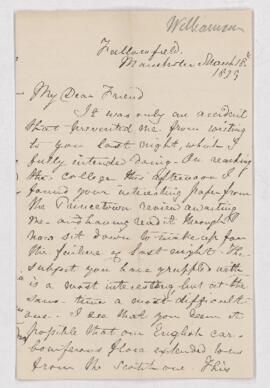 Williamson
Fallowfield.
Manchester March 18th
1879
My Dear Friend
It was only an accident
that prevented me from writing
to you last night, which I
fully intended doing. On reaching
the college this afternoon I
found your interesting paper from
the Princetown review awaiting
me and having read it through I
now sit down to make up for
the failure of last night. The
subject you have grappled with
is a most interesting but at the
same time a most difficult
one. I see that you deem it
possible that our English car-
boniferous flora extended down
from the Scotch one. This